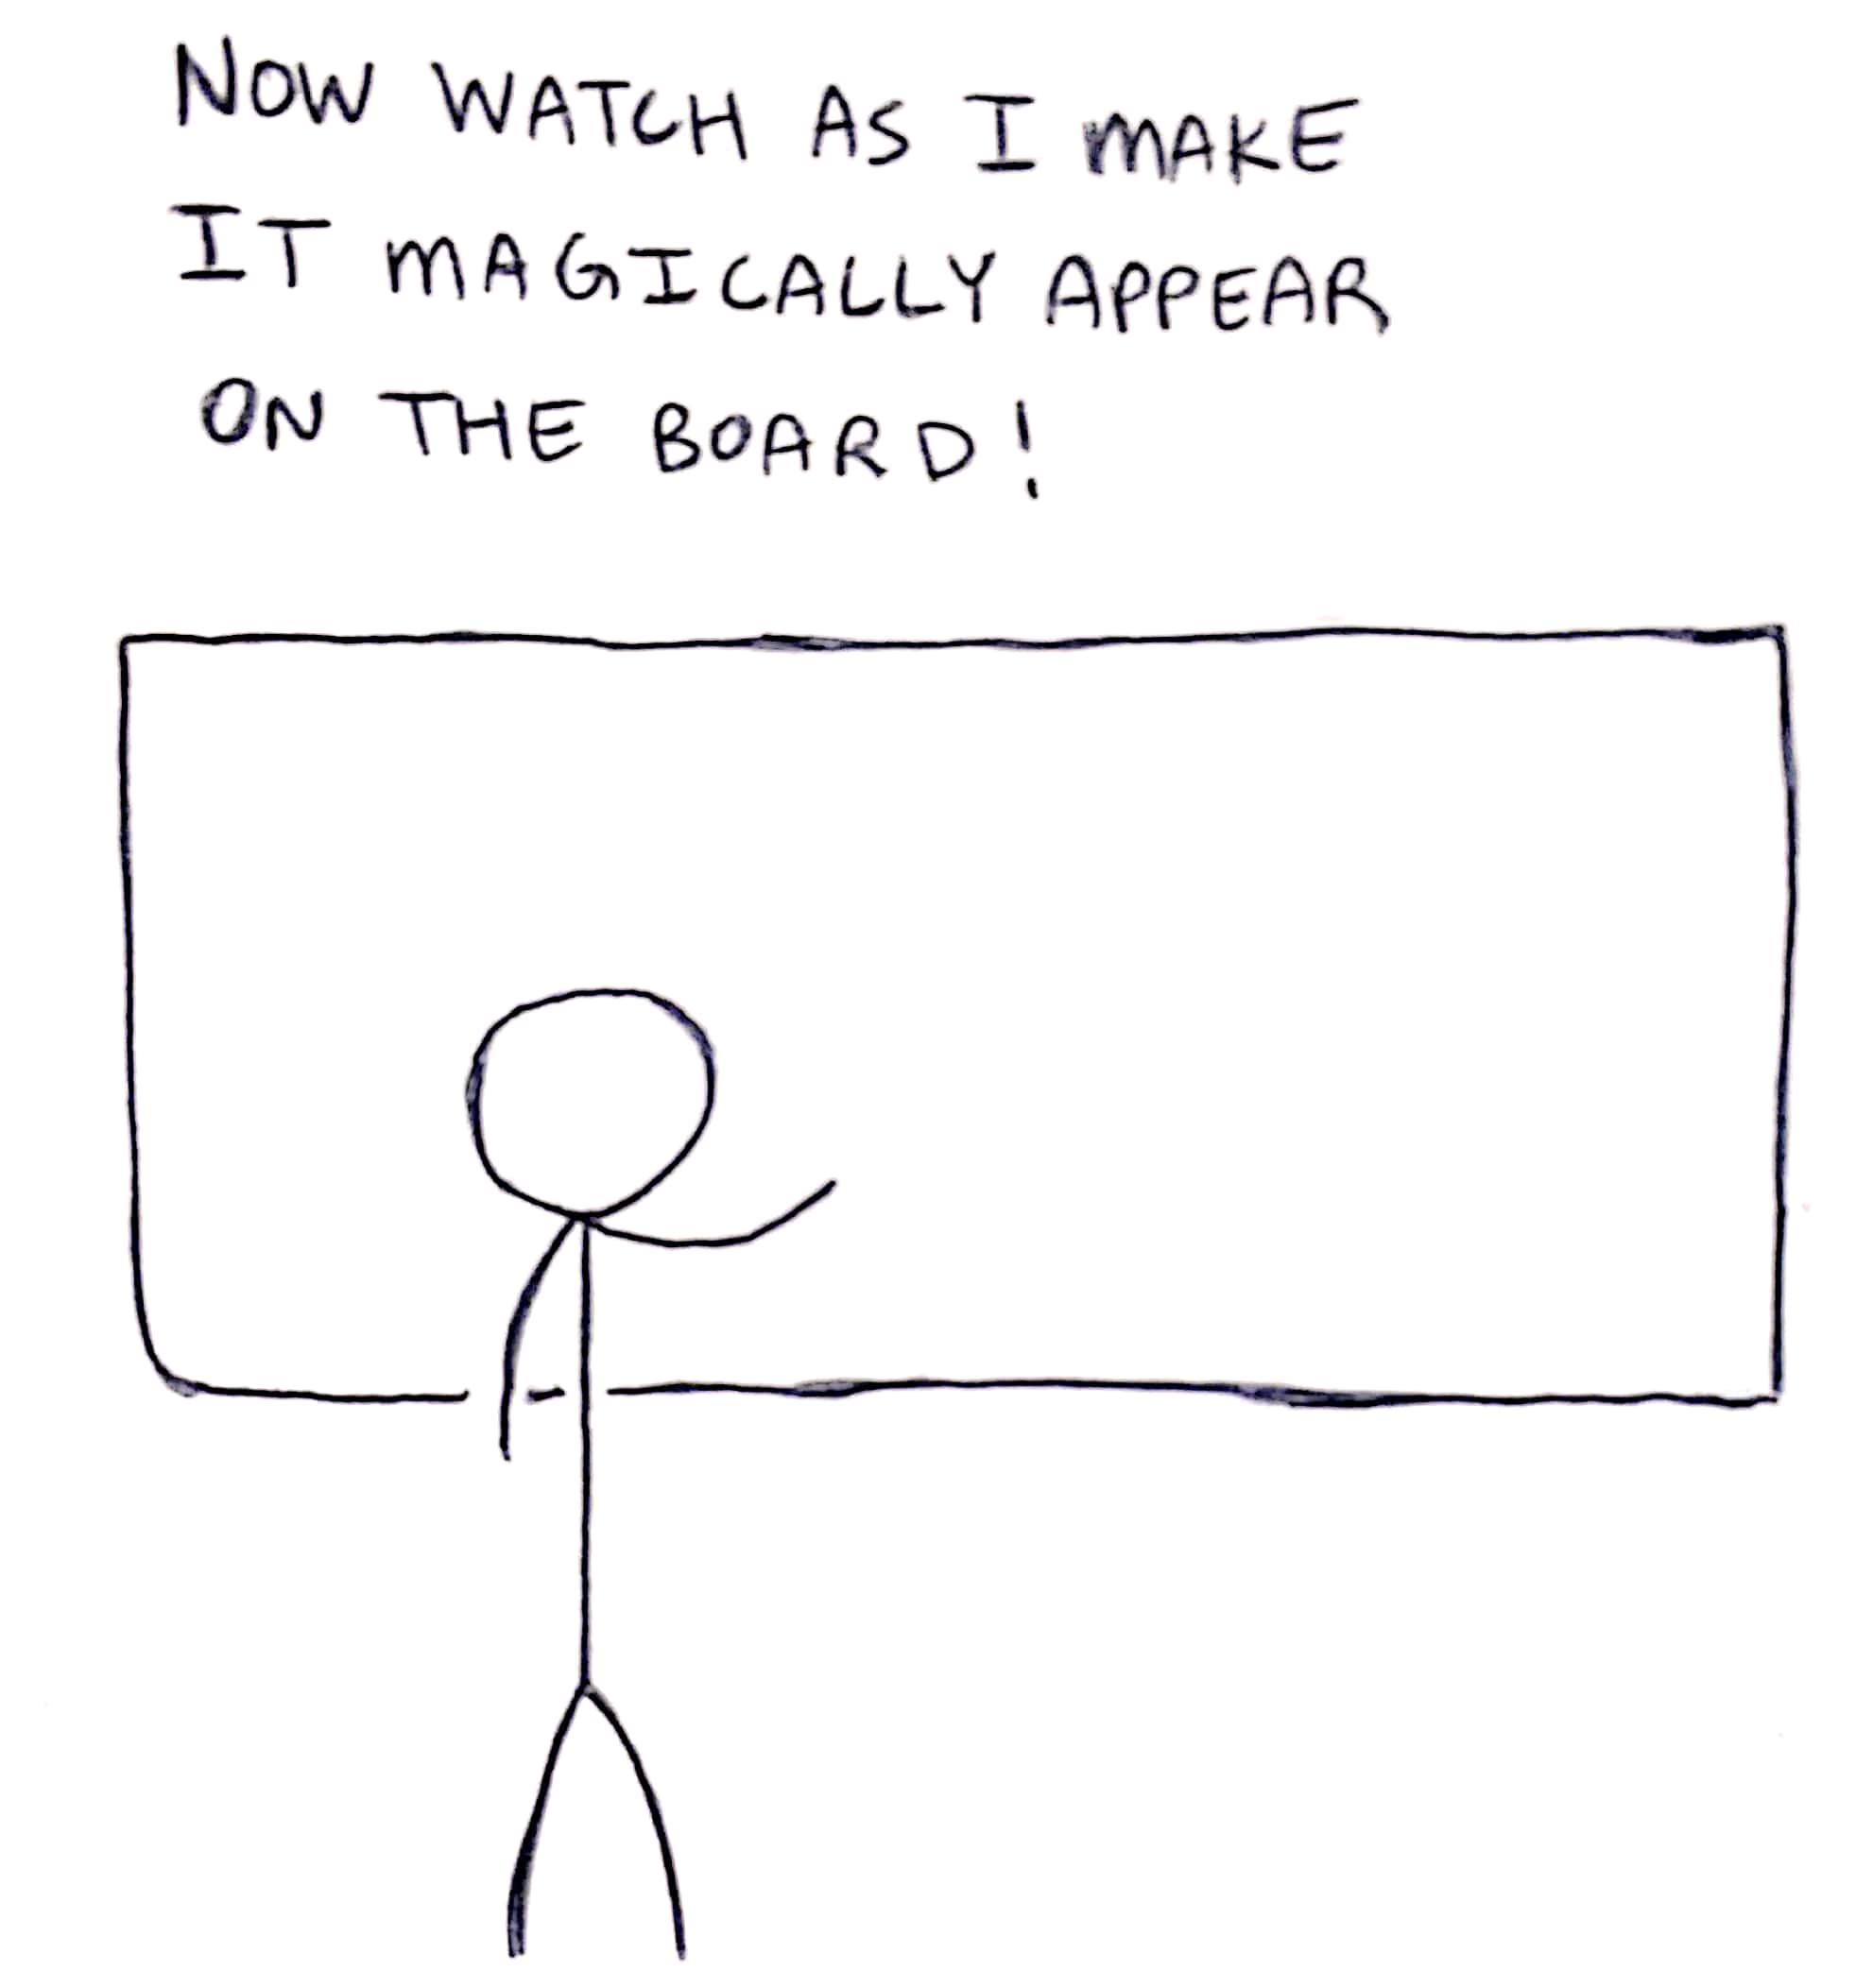 NOW WATCH AS I MAKE
IT MAGICALLY APPEAR
ON THE BOARD!